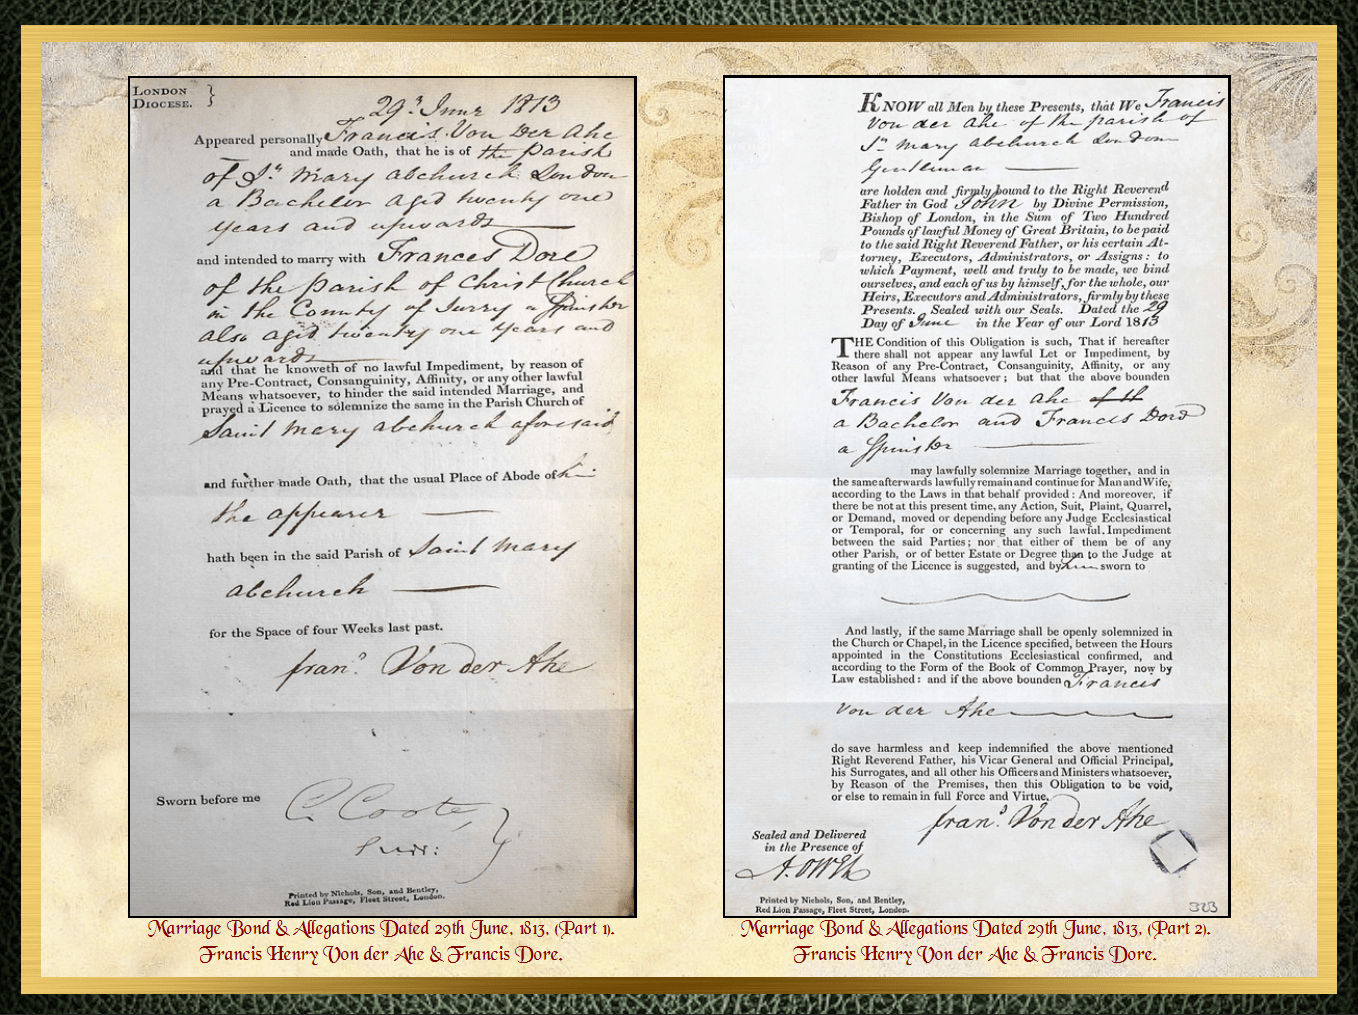 LONDON
DIOCESE.
29th June 1813
Appeared personally Francis Von Der Ahe
and made Oath, that he is of the Parish
of St. Mary abchurch London
a Bachelor aged twenty one
years and upwards
and intended to marry with Frances Dore
of the Parish of Christ Church
in the County of Surry a Spinster
also aged twenty one years and
upwards
and that he knoweth of no lawful Impediment, by reason of
any Pre-Contract, Consanguinity, Affinity, or any other lawful
Means whatsoever, to hinder the said intended Marriage, and
prayed a Licence to solemnize the same in the Parish Church of
Saint Mary abchurch aforesaid
and further made Oath, that the usual Place of Abode of him
the appearer
hath been in the said Parish of Saint Mary
abchurch
for the Space of four Weeks last past.
frans. Von der Ahe
Sworn before me C. Coote,
Surr:
Printed by Nichols, Son, and Bentley,
Red Lion Passage, Fleet Street, London.
Marriage Bond & Allegations Dated 29th June, 1813, (Part 1).
Francis Henry Von der Ahe & Francis Dore.
KNOW all Men by these Presents, that We Francis
Von der Ahe of the parish of
St. Mary abchurch London
Gentleman
are holden and firmly bound to the Right Reverend
Father in God John by Divine Permission,
Bishop of London, in the Sum of Two Hundred
Pounds of lawful Money of Great Britain, to be paid
to the said Right Reverend Father, or his certain At-
torney, Executors, Administrators, or Assigns: to
which Payment, well and truly to be made, we bind
ourselves, and each of us by himself, for the whole, our
Heirs, Executors and Administrators, firmly by these
Presents. Sealed with our Seals. Dated the 29
Day of June in the Year of our Lord 1813
THE Condition of this Obligation is such, That if hereafter
there shall not appear any lawful Let or Impediment, by
Reason of any Pre-Contract, Consanguinity, Affinity, or any
other lawful Means whatsoever; but that the above bounden
Francis Von der Ahe of th
a Bachelor and Frances Dore
a Spinster
may lawfully solemnize Marriage together, and in
the same afterwards lawfully remain and continue for Man and Wife,
according to the Laws in that behalf provided: And moreover, if
there be not at this present time, any Action, Suit, Plaint, Quarrel,
or Demand, moved or depending before any Judge Ecclesiastical
or Temporal, for or concerning any such lawful Impediment
between the said Parties; nor that either of them be of any
other Parish, or of better Estate or Degree than to the Judge at
granting of the Licence is suggested, and by him sworn to
And lastly, if the same Marriage shall be openly solemnized in
the Church or Chapel, in the Licence specified, between the Hours
appointed in the Constitutions Ecclesiastical confirmed, and
according to the Form of the Book of Common Prayer, now by
Law established: and if the above bounden Francis
Von der Ahe
do save harmless and keep indemnified the above mentioned
Right Reverend Father, his Vicar General and Official Principal,
his Surrogates, and all other his Officers and Ministers whatsoever,
by Reason of the Premises, then this Obligation to be void,
or else to remain in full Force and Virtue.
frans. Von der Ahe
Sealed and Delivered
in the Presence of
Printed by Nichols, Son, and Bentley,
Red Lion Passage, Fleet Street, London.
323
Marriage Bond & Allegations Dated 29th June, 1813, (Part 2).
Francis Henry Von der Ahe & Francis Dore.